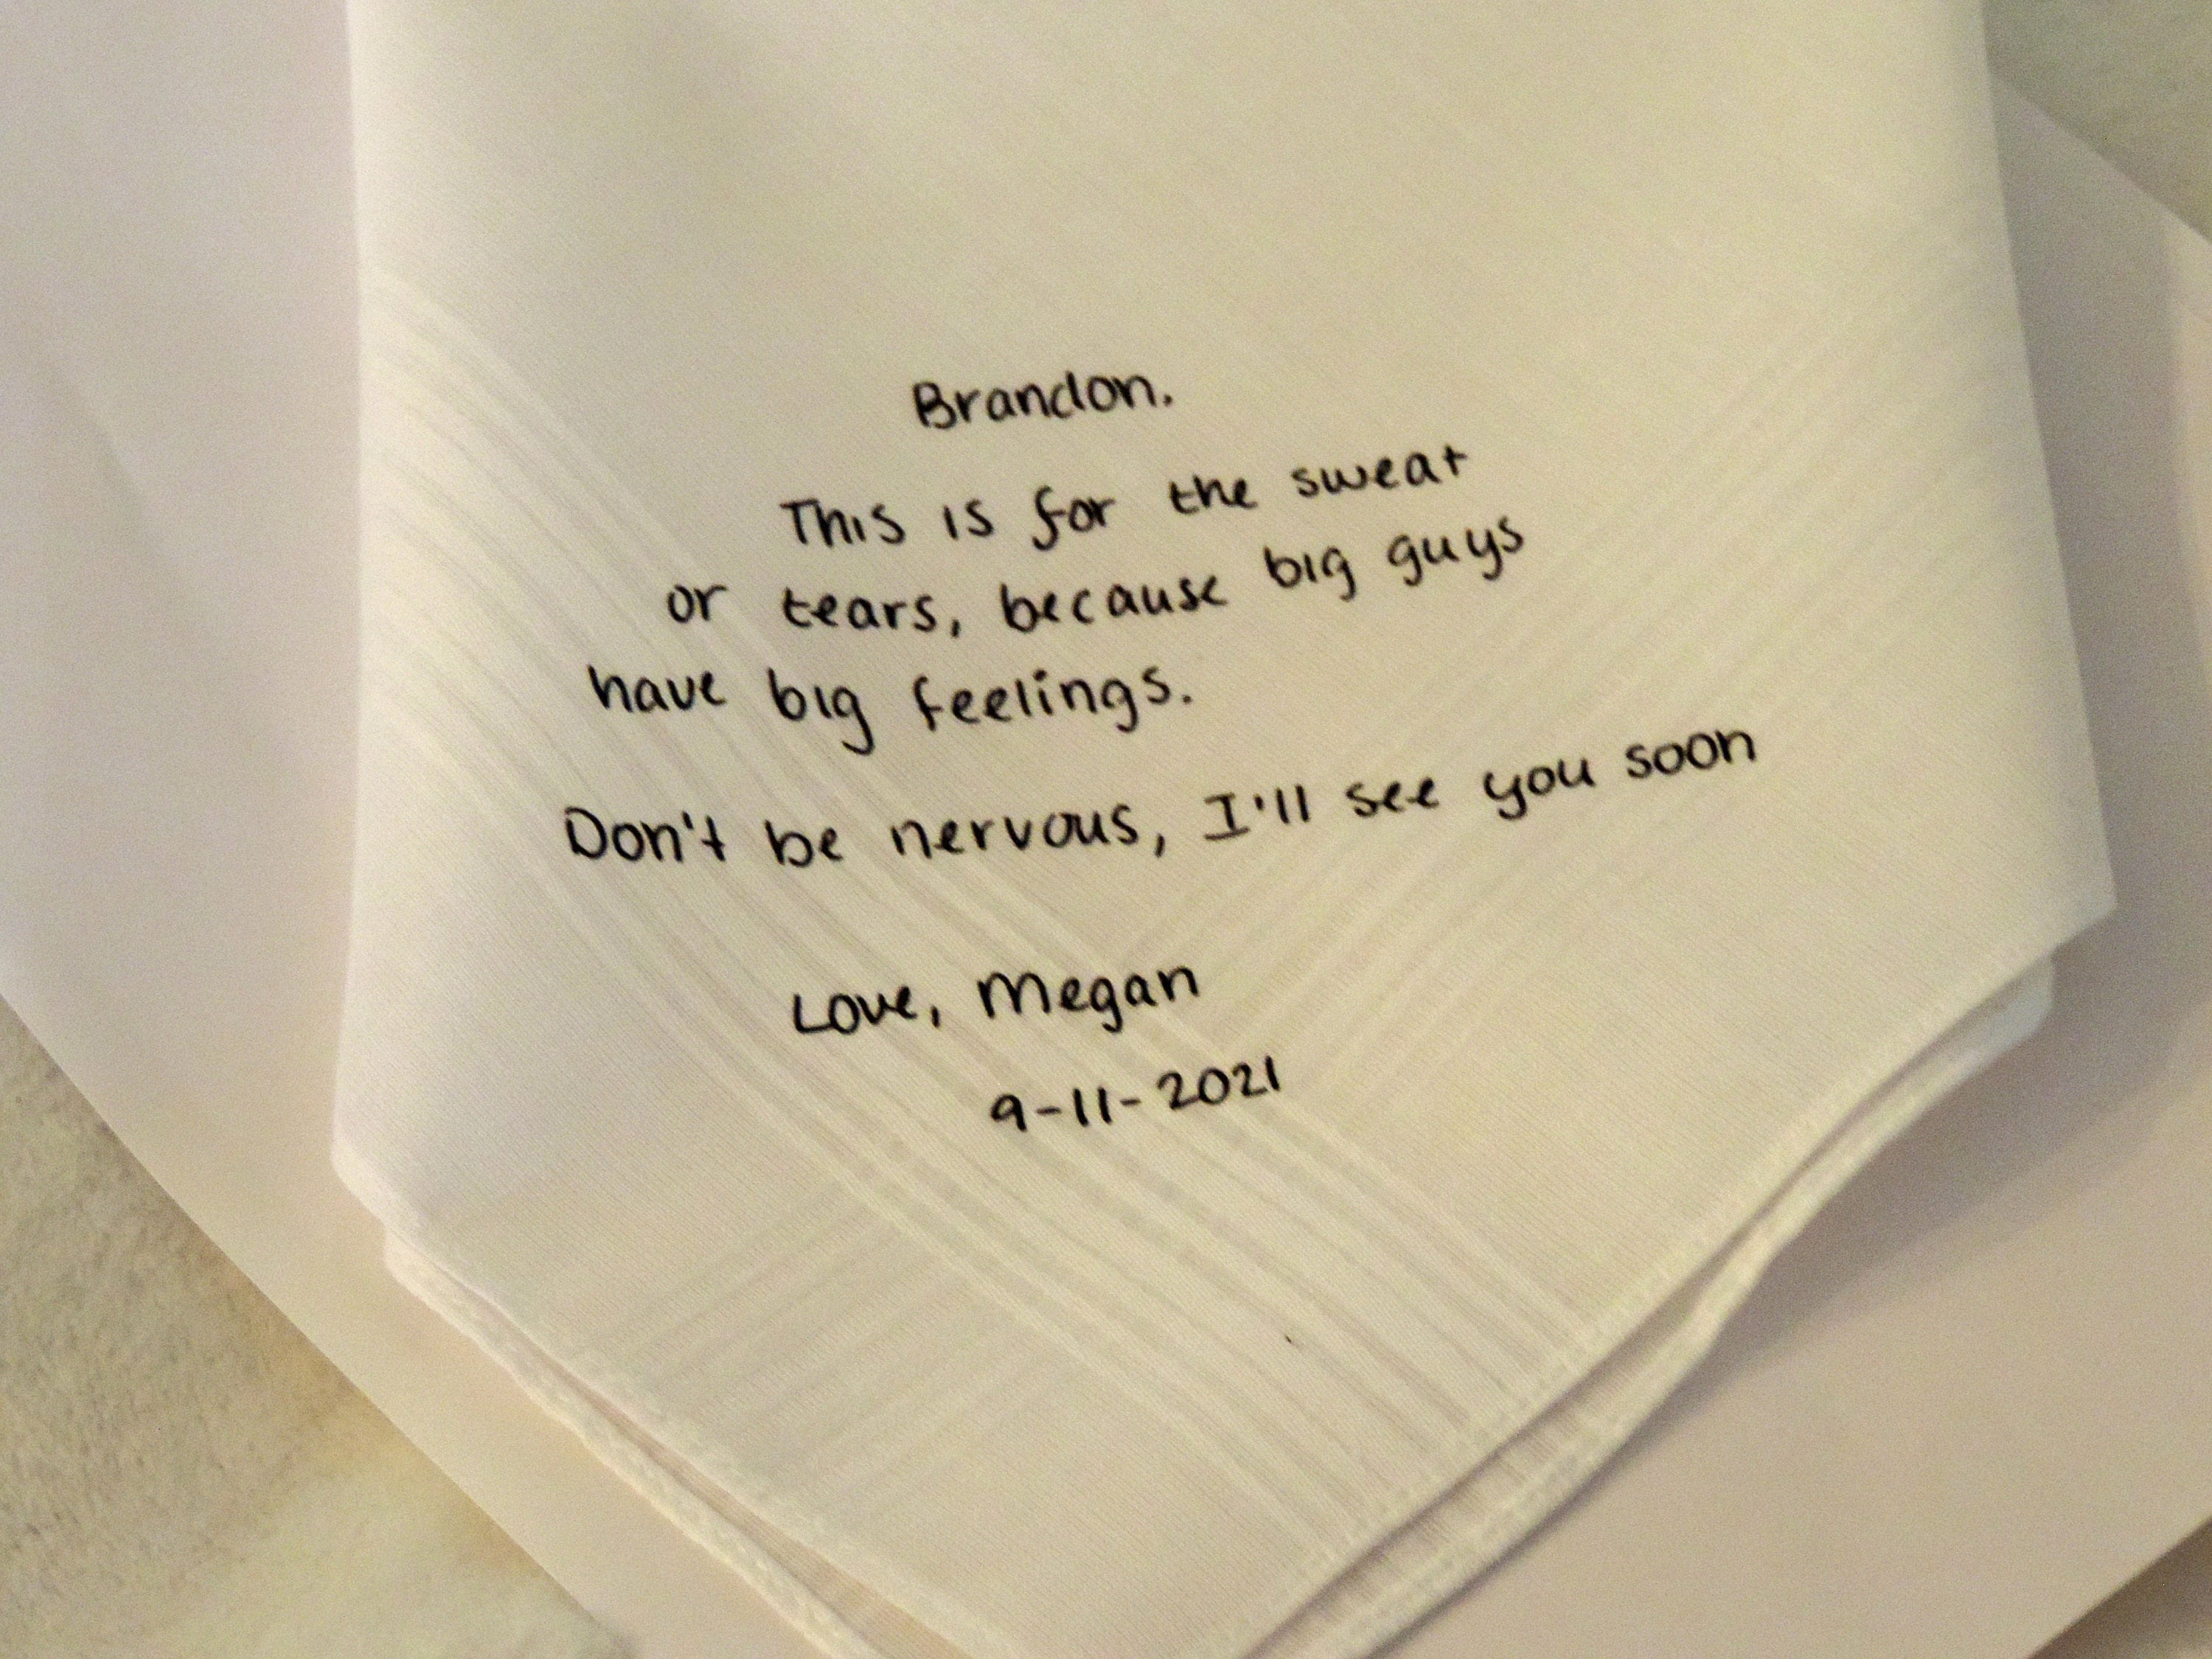 Brandon.
This is for the sweat
or tears, because big guys
have big feelings.
Don't be nervous, I'll see you soon
Love, Megan
9-11-2021